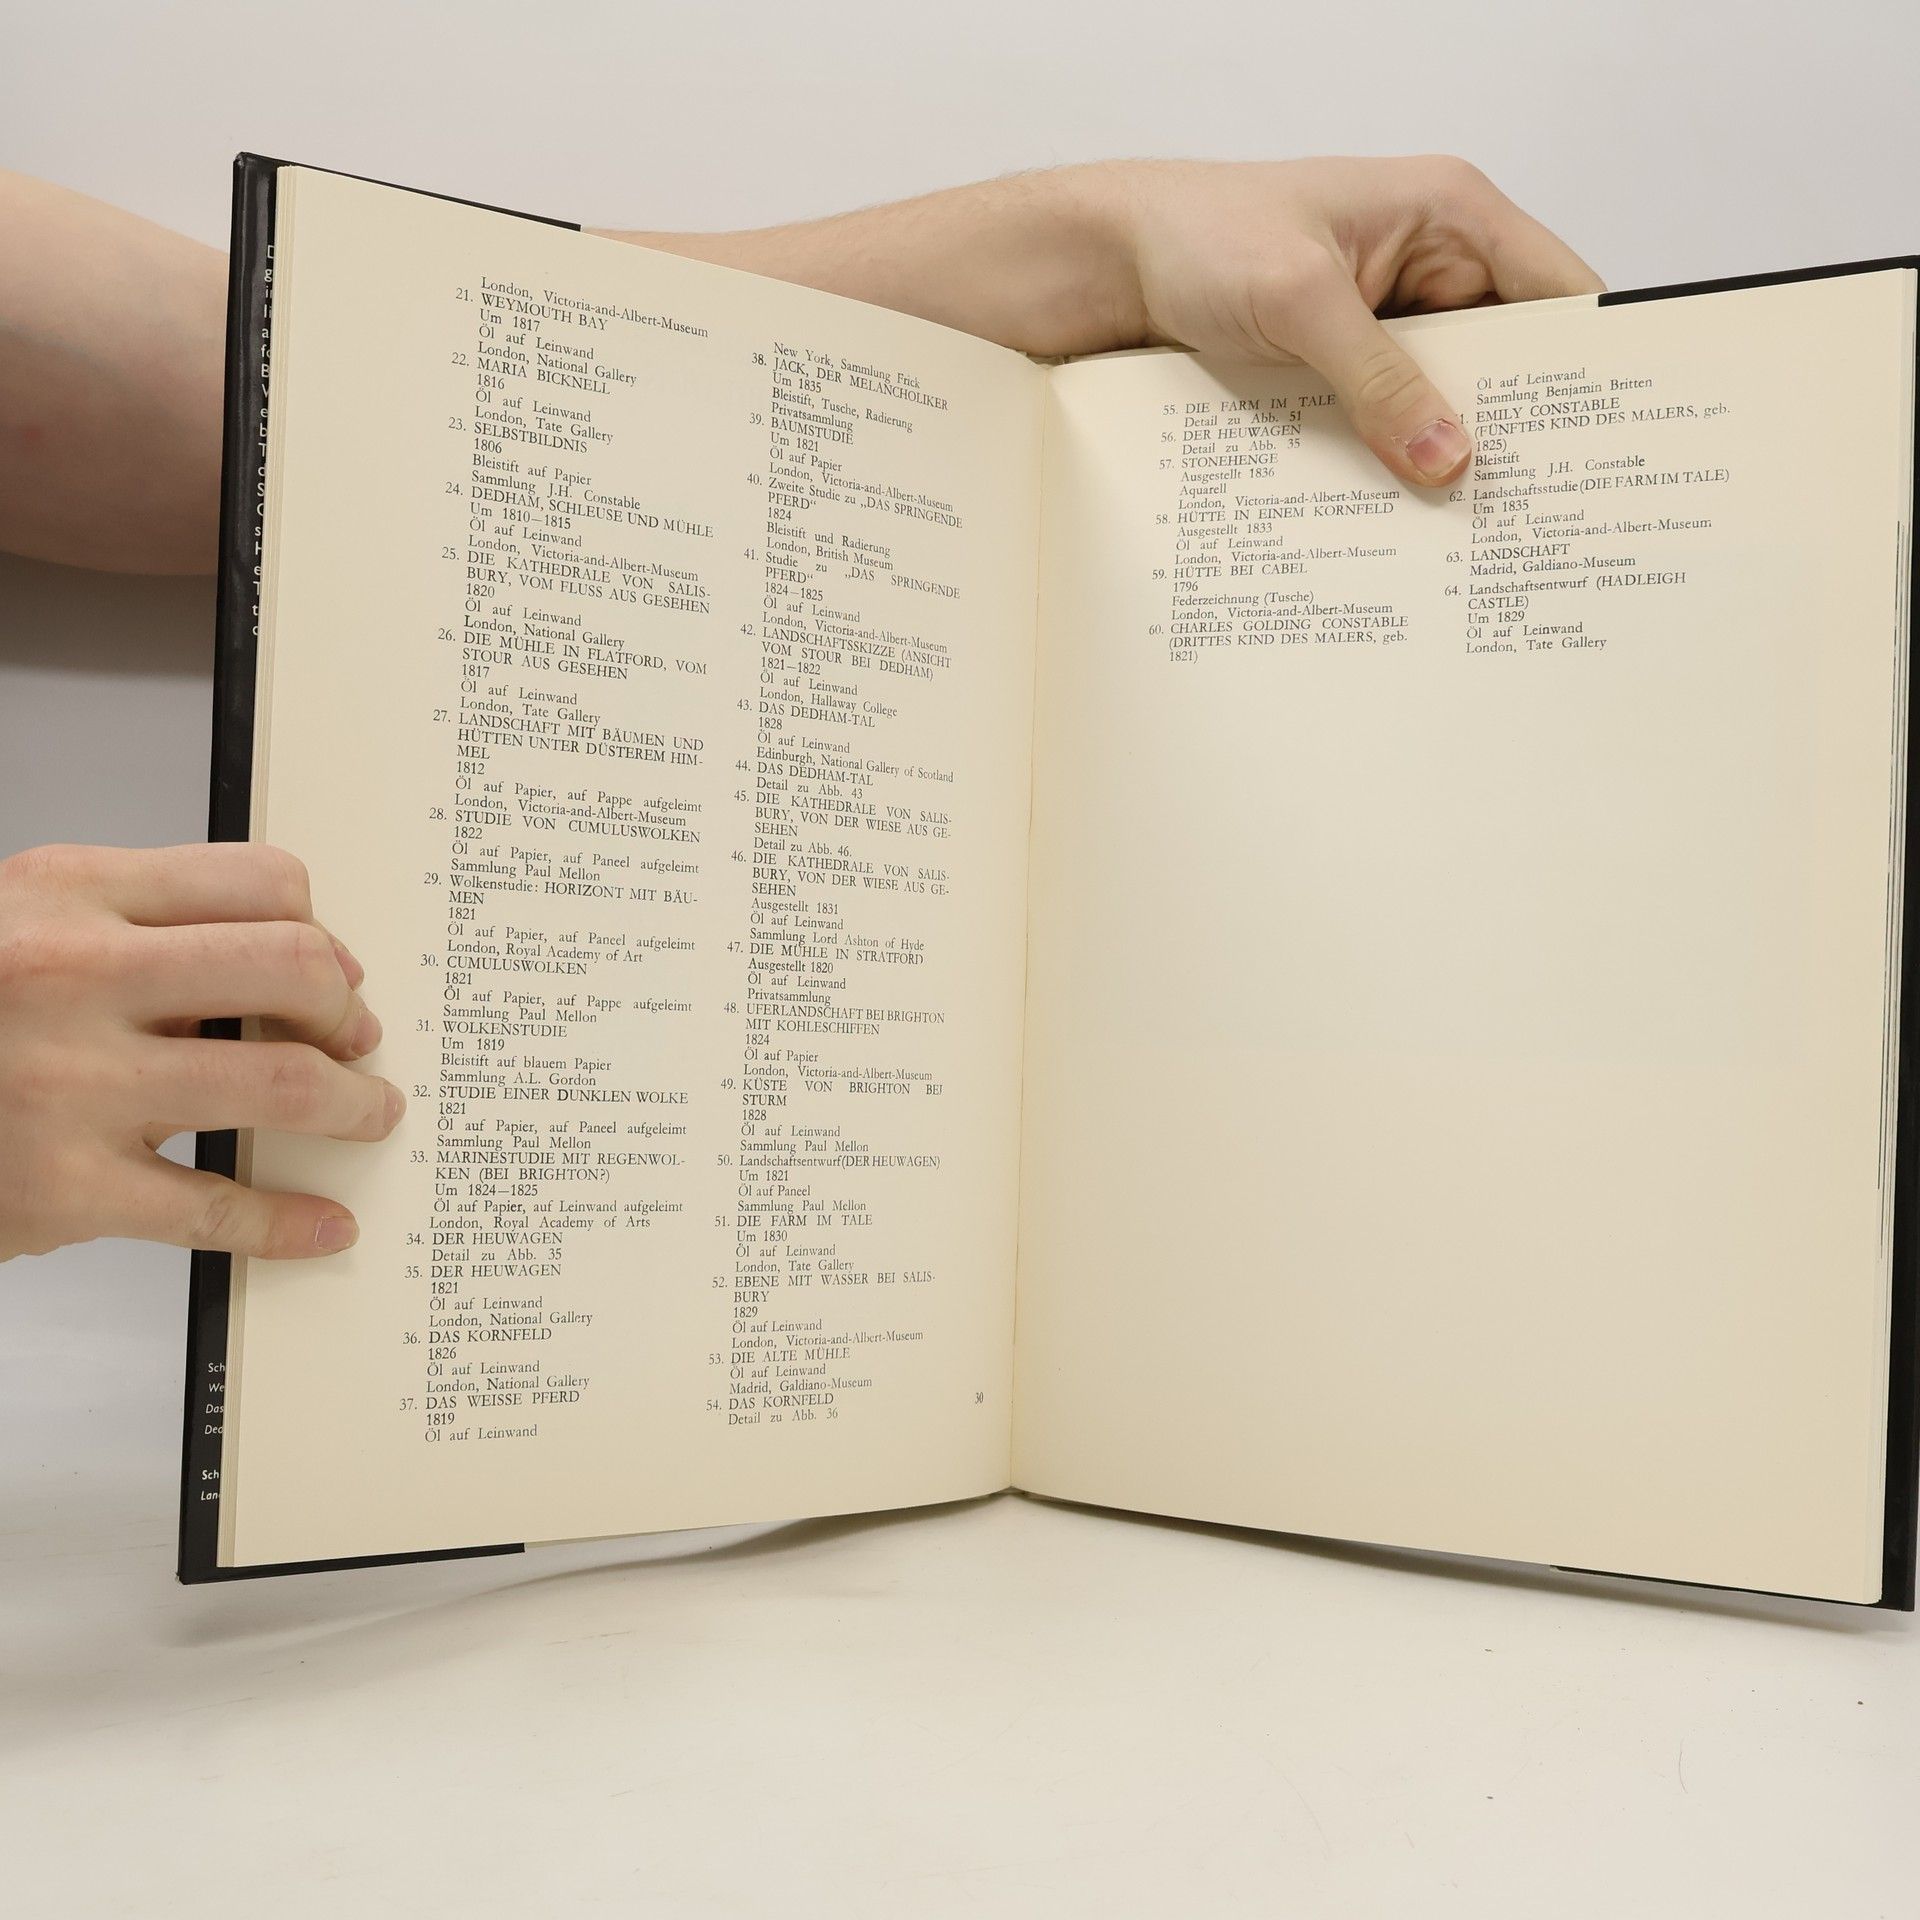 London, Victoria-and-Albert-Museum
21. WEYMOUTH BAY
Um 1817
Öl auf Leinwand
London, National Gallery
22. MARIA BICKNELL
1816
Öl auf Leinwand
London, Tate Gallery
23. SELBSTBILDNIS
1806
Bleistift auf Papier
Sammlung J.H. Constable
24. DEDHAM, SCHLEUSE UND MÜHLE
Um 1810—1815
Öl auf Leinwand
London, Victoria-and-Albert-Museum
25. DIE KATHEDRALE VON SALIS-
BURY, VOM FLUSS AUS GESEHEN
1820
Öl auf Leinwand
London, National Gallery
26. DIE MÜHLE IN FLATFORD, VOM
STOUR AUS GESEHEN
1817
Öl auf Leinwand
London, Tate Gallery
27. LANDSCHAFT MIT BÄUMEN UND
HÜTTEN UNTER DÜSTEREM HIM-
MEL
1812
Öl auf Papier, auf Pappe aufgeleimt
London, Victoria-and-Albert-Museum
28. STUDIE VON CUMULUSWOLKEN
1822
Öl auf Papier, auf Paneel aufgeleimt
Sammlung Paul Mellon
29. Wolkenstudie: HORIZONT MIT BÄU-
MEN
1821
Öl auf Papier, auf Paneel aufgeleimt
London, Royal Academy of Art
30. CUMULUSWOLKEN
1821
Öl auf Papier, auf Pappe aufgeleimt
Sammlung Paul Mellon
31. WOLKENSTUDIE
Um 1819
Bleistift auf blauem Papier
Sammlung A.L. Gordon
32. STUDIE EINER DUNKLEN WOLKE
1821
Öl auf Papier, auf Paneel aufgeleimt
Sammlung Paul Mellon
33. MARINESTUDIE MIT REGENWOL-
KEN (BEI BRIGHTON?)
Um 1824—1825
Öl auf Papier, auf Leinwand aufgeleimt
London, Royal Academy of Arts
34. DER HEUWAGEN
Detail zu Abb. 35
35. DER HEUWAGEN
1821
Öl auf Leinwand
London, National Gallery
36. DAS KORNFELD
1826
Öl auf Leinwand
London, National Gallery
37. DAS WEISSE PFERD
1819
Öl auf Leinwand
New York, Sammlung Frick
38. JACK, DER MELANCHOLIKER
Um 1835
Bleistift, Tusche, Radierung
Privatsammlung
39. BAUMSTUDIE
Um 1821
Öl auf Papier
London, Victoria-and-Albert-Museum
40. Zweite Studie zu „DAS SPRINGENDE
PFERD“
1824
Bleistift und Radierung
London, British Museum
41. Studie zu „DAS SPRINGENDE
PFERD“
1824—1825
Öl auf Leinwand
London, Victoria-and-Albert-Museum
42. LANDSCHAFTSSKIZZE (ANSICHT
VOM STOUR BEI DEDHAM)
1821—1822
Öl auf Leinwand
London, Hallaway College
43. DAS DEDHAM-TAL
1828
Öl auf Leinwand
Edinburgh, National Gallery of Scotland
44. DAS DEDHAM-TAL
Detail zu Abb. 43
45. DIE KATHEDRALE VON SALIS-
BURY, VON DER WIESE AUS GE-
SEHEN
Detail zu Abb. 46.
46. DIE KATHEDRALE VON SALIS-
BURY, VON DER WIESE AUS GE-
SEHEN
Ausgestellt 1831
Öl auf Leinwand
Sammlung Lord Ashton of Hyde
47. DIE MÜHLE IN STRATFORD
Ausgestellt 1820
Öl auf Leinwand
Privatsammlung
48. UFERLANDSCHAFT BEI BRIGHTON
MIT KOHLESCHIFFEN
1824
Öl auf Papier
London, Victoria-and-Albert-Museum
49. KÜSTE VON BRIGHTON BEI
STURM
1828
Öl auf Leinwand
Sammlung Paul Mellon
50. Landschaftsentwurf (DER HEUWAGEN)
Um 1821
Öl auf Paneel
Sammlung Paul Mellon
51. DIE FARM IM TALE
Um 1830
Öl auf Leinwand
London, Tate Gallery
52. EBENE MIT WASSER BEI SALIS-
BURY
1829
Öl auf Leinwand
London, Victoria-and-Albert-Museum
53. DIE ALTE MÜHLE
Öl auf Leinwand
Madrid, Galdiano-Museum
54. DAS KORNFELD
Detail zu Abb. 36
30
55. DIE FARM IM TALE
Detail zu Abb. 51
56. DER HEUWAGEN
Detail zu Abb. 35
57. STONEHENGE
Ausgestellt 1836
Aquarell
London, Victoria-and-Albert-Museum
58. HÜTTE IN EINEM KORNFELD
Ausgestellt 1833
Öl auf Leinwand
London, Victoria-and-Albert-Museum
59. HÜTTE BEI CABEL
1796
Federzeichnung (Tusche)
London, Victoria-and-Albert-Museum
60. CHARLES GOLDING CONSTABLE
(DRITTES KIND DES MALERS, geb.
1821)
Öl auf Leinwand
Sammlung Benjamin Britten
1. EMILY CONSTABLE
(FÜNFTES KIND DES MALERS, geb.
1825)
Bleistift
Sammlung J.H. Constable
62. Landschaftsstudie (DIE FARM IM TALE)
Um 1835
Öl auf Leinwand
London, Victoria-and-Albert-Museum
63. LANDSCHAFT
Madrid, Galdiano-Museum
64. Landschaftsentwurf (HADLEIGH
CASTLE)
Um 1829
Öl auf Leinwand
London, Tate Gallery